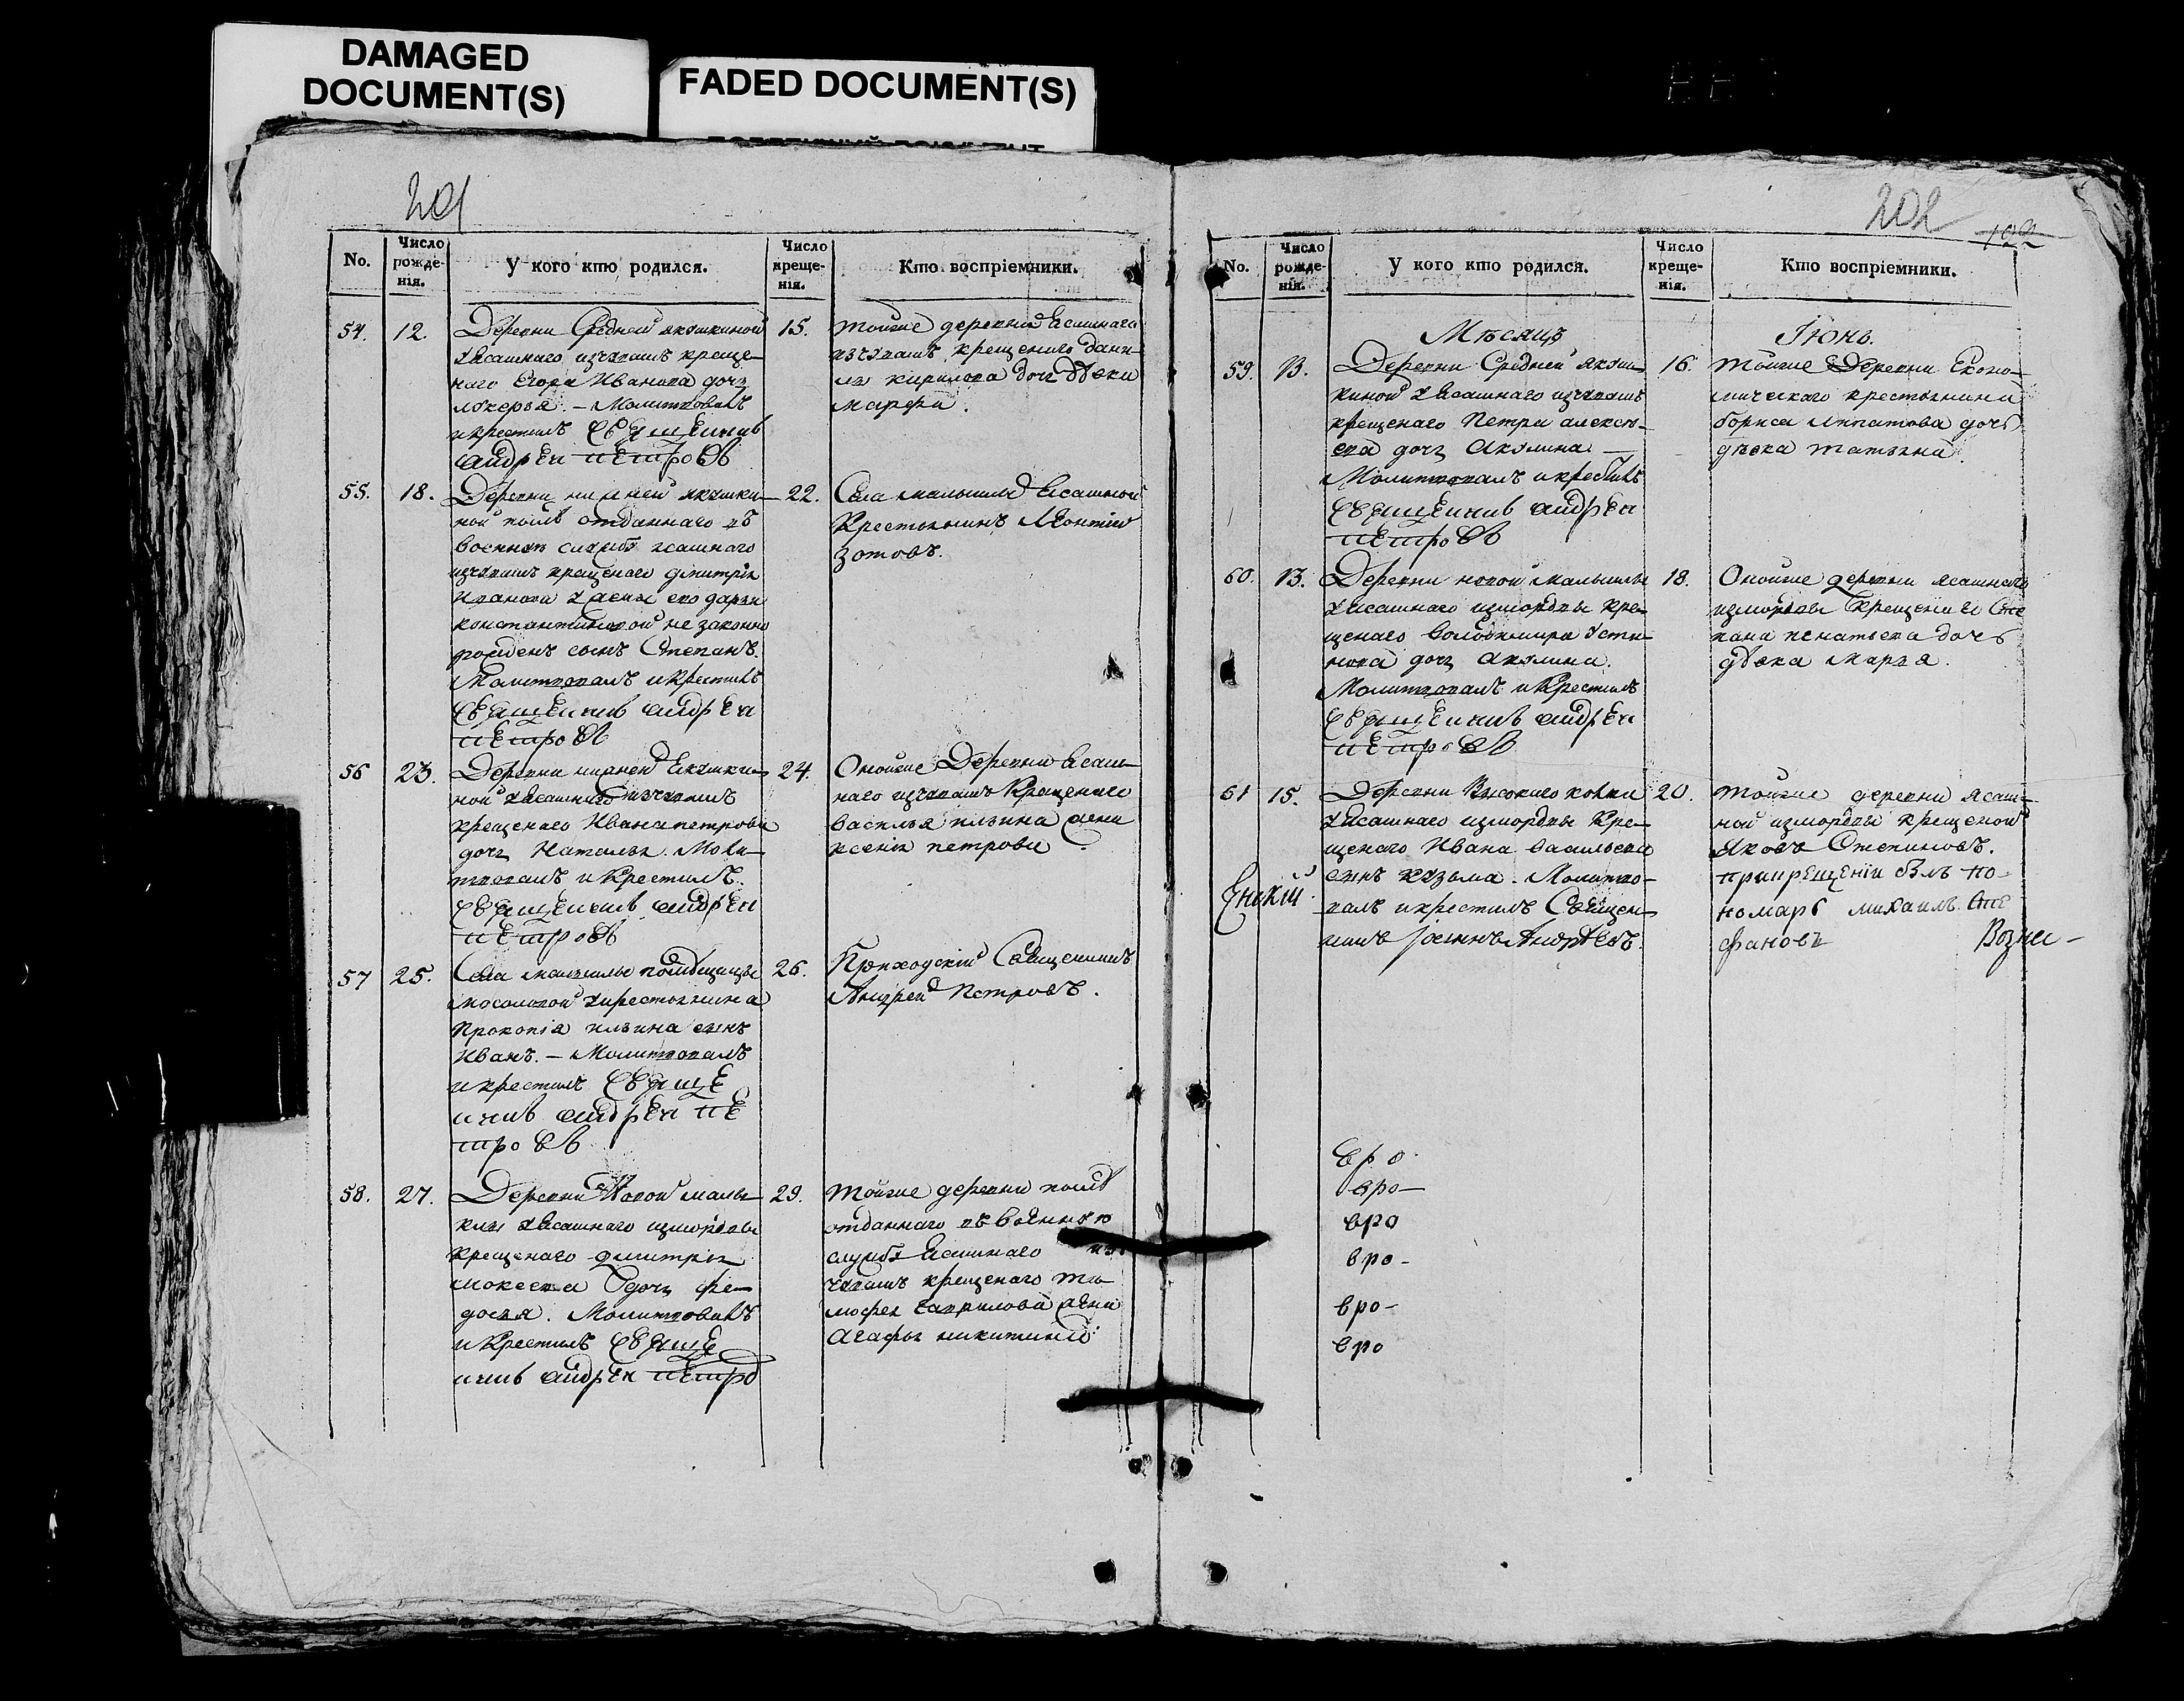 DAMAGED
DOCUMENT(S)
FADED DOCUMENT(S)
201
No.
Число рожденія.
У кого кто родился.
Число крещенія.
Кто воспріемники.
54.
12.
Деревни Средней якушкиной
уясашнаго изчувашъ креще-
наго Егора Иванова дочь
лукерья. – Молитвовалъ
и крестилъ священникъ
андрей петровъ
15.
тойже деревни ясашнаго
изчувашъ крещенаго дани-
ла кирилова дочь дѣвка
марфа.
55.
18.
Деревни нижней якушки-
ной послѣ отданнаго въ
военную службу ясашнаго
изчувашъ крещенаго дмитрія
Иванова у жены его дарьи
константиновой не законно
рожденъ сынъ Степанъ.
Молитвовалъ и крестилъ
священникъ андрей
петровъ
22.
Села малыклы ясашной
крестьянинъ Леонтій
зотовъ.
56
23.
Деревни нижней Якушки-
ной уясашнаго изчувашъ
крещенаго Ивана петрова
дочь Наталья. Моли-
твовалъ и крестилъ.
священникъ андрей
петровъ
24.
Онойже Деревни ясаш-
наго изчувашъ крещенаго
василья ильина жена
ксенья петрова
57
25.
Села малыклы помѣщицы
мосоловой укрестьянина
Прокопія ильина сынъ
Иванъ. – Молитвовалъ
и крестилъ священ
никъ андрей пе
тровъ
26.
Приходскій Священникъ
Андрей Петровъ.
58.
27.
Деревни Новой малы-
клы уясашнаго измордвы
крещенаго дмитрія
мокеева дочь фе-
досья. Молитвовалъ
и крестилъ священ
никъ андрей петро
29.
тойже деревни послѣ
отданнаго въ военную
службу ясашнаго из
чувашъ крещенаго ти-
мофея гаврилова жена
агафья никитина
202
No.
Число рожденія.
У кого кто родился.
Число крещенія.
Кто воспріемники.
Мѣсяцъ
Іюнь.
59.
13.
Деревни Средней якуш-
киной уясашнаго изчувашъ
крещенаго Петра алексѣ-
ева дочь Акулина. –
Молитвовалъ и крестилъ
священникъ андрей
петровъ
16.
тойже Деревни Еконо-
мическаго крестьянина
бориса ипатова дочь
дѣвка татьяна.
60.
13.
Деревни новой малыклы
уясашнаго измордвы кре-
щенаго володимира усти-
нова дочь акулина.
Молитвовалъ и крестилъ
священникъ андрей
петровъ
18.
Онойже деревни ясашнаго
измордвы крещенаго Сте
пана игнатьева дочь
дѣвка марья.
61
15.
Деревни Высокаго колка
уясашнаго измордвы кре-
щенаго Ивана васильева
сынъ кузьма. Молитво-
валъ и крестилъ Священ-
никъ Іоаннъ Андреевъ.
20.
тойже деревни ясаш-
ной измордвы крещеной
Яковъ Степановъ.
прикрещеніи былъ по-
номарь михаилъ Сте
фановъ Возне-
сенскій
вро
вро–
вро
вро–
вро–
вро